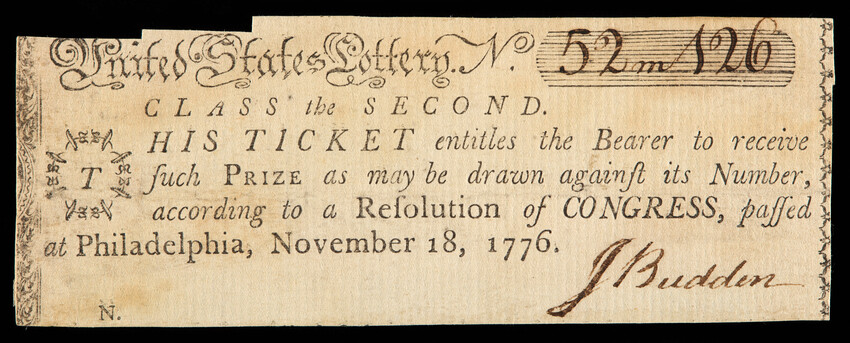 United States Lottery. No. 52m126
CLASS the SECOND.
THIS TICKET entitles the Bearer to receive
ſuch PRIZE as may be drawn againſt its Number,
according to a Reſolution of CONGRESS, paſſed
at Philadelphia, November 18, 1776.
J Budden
N.